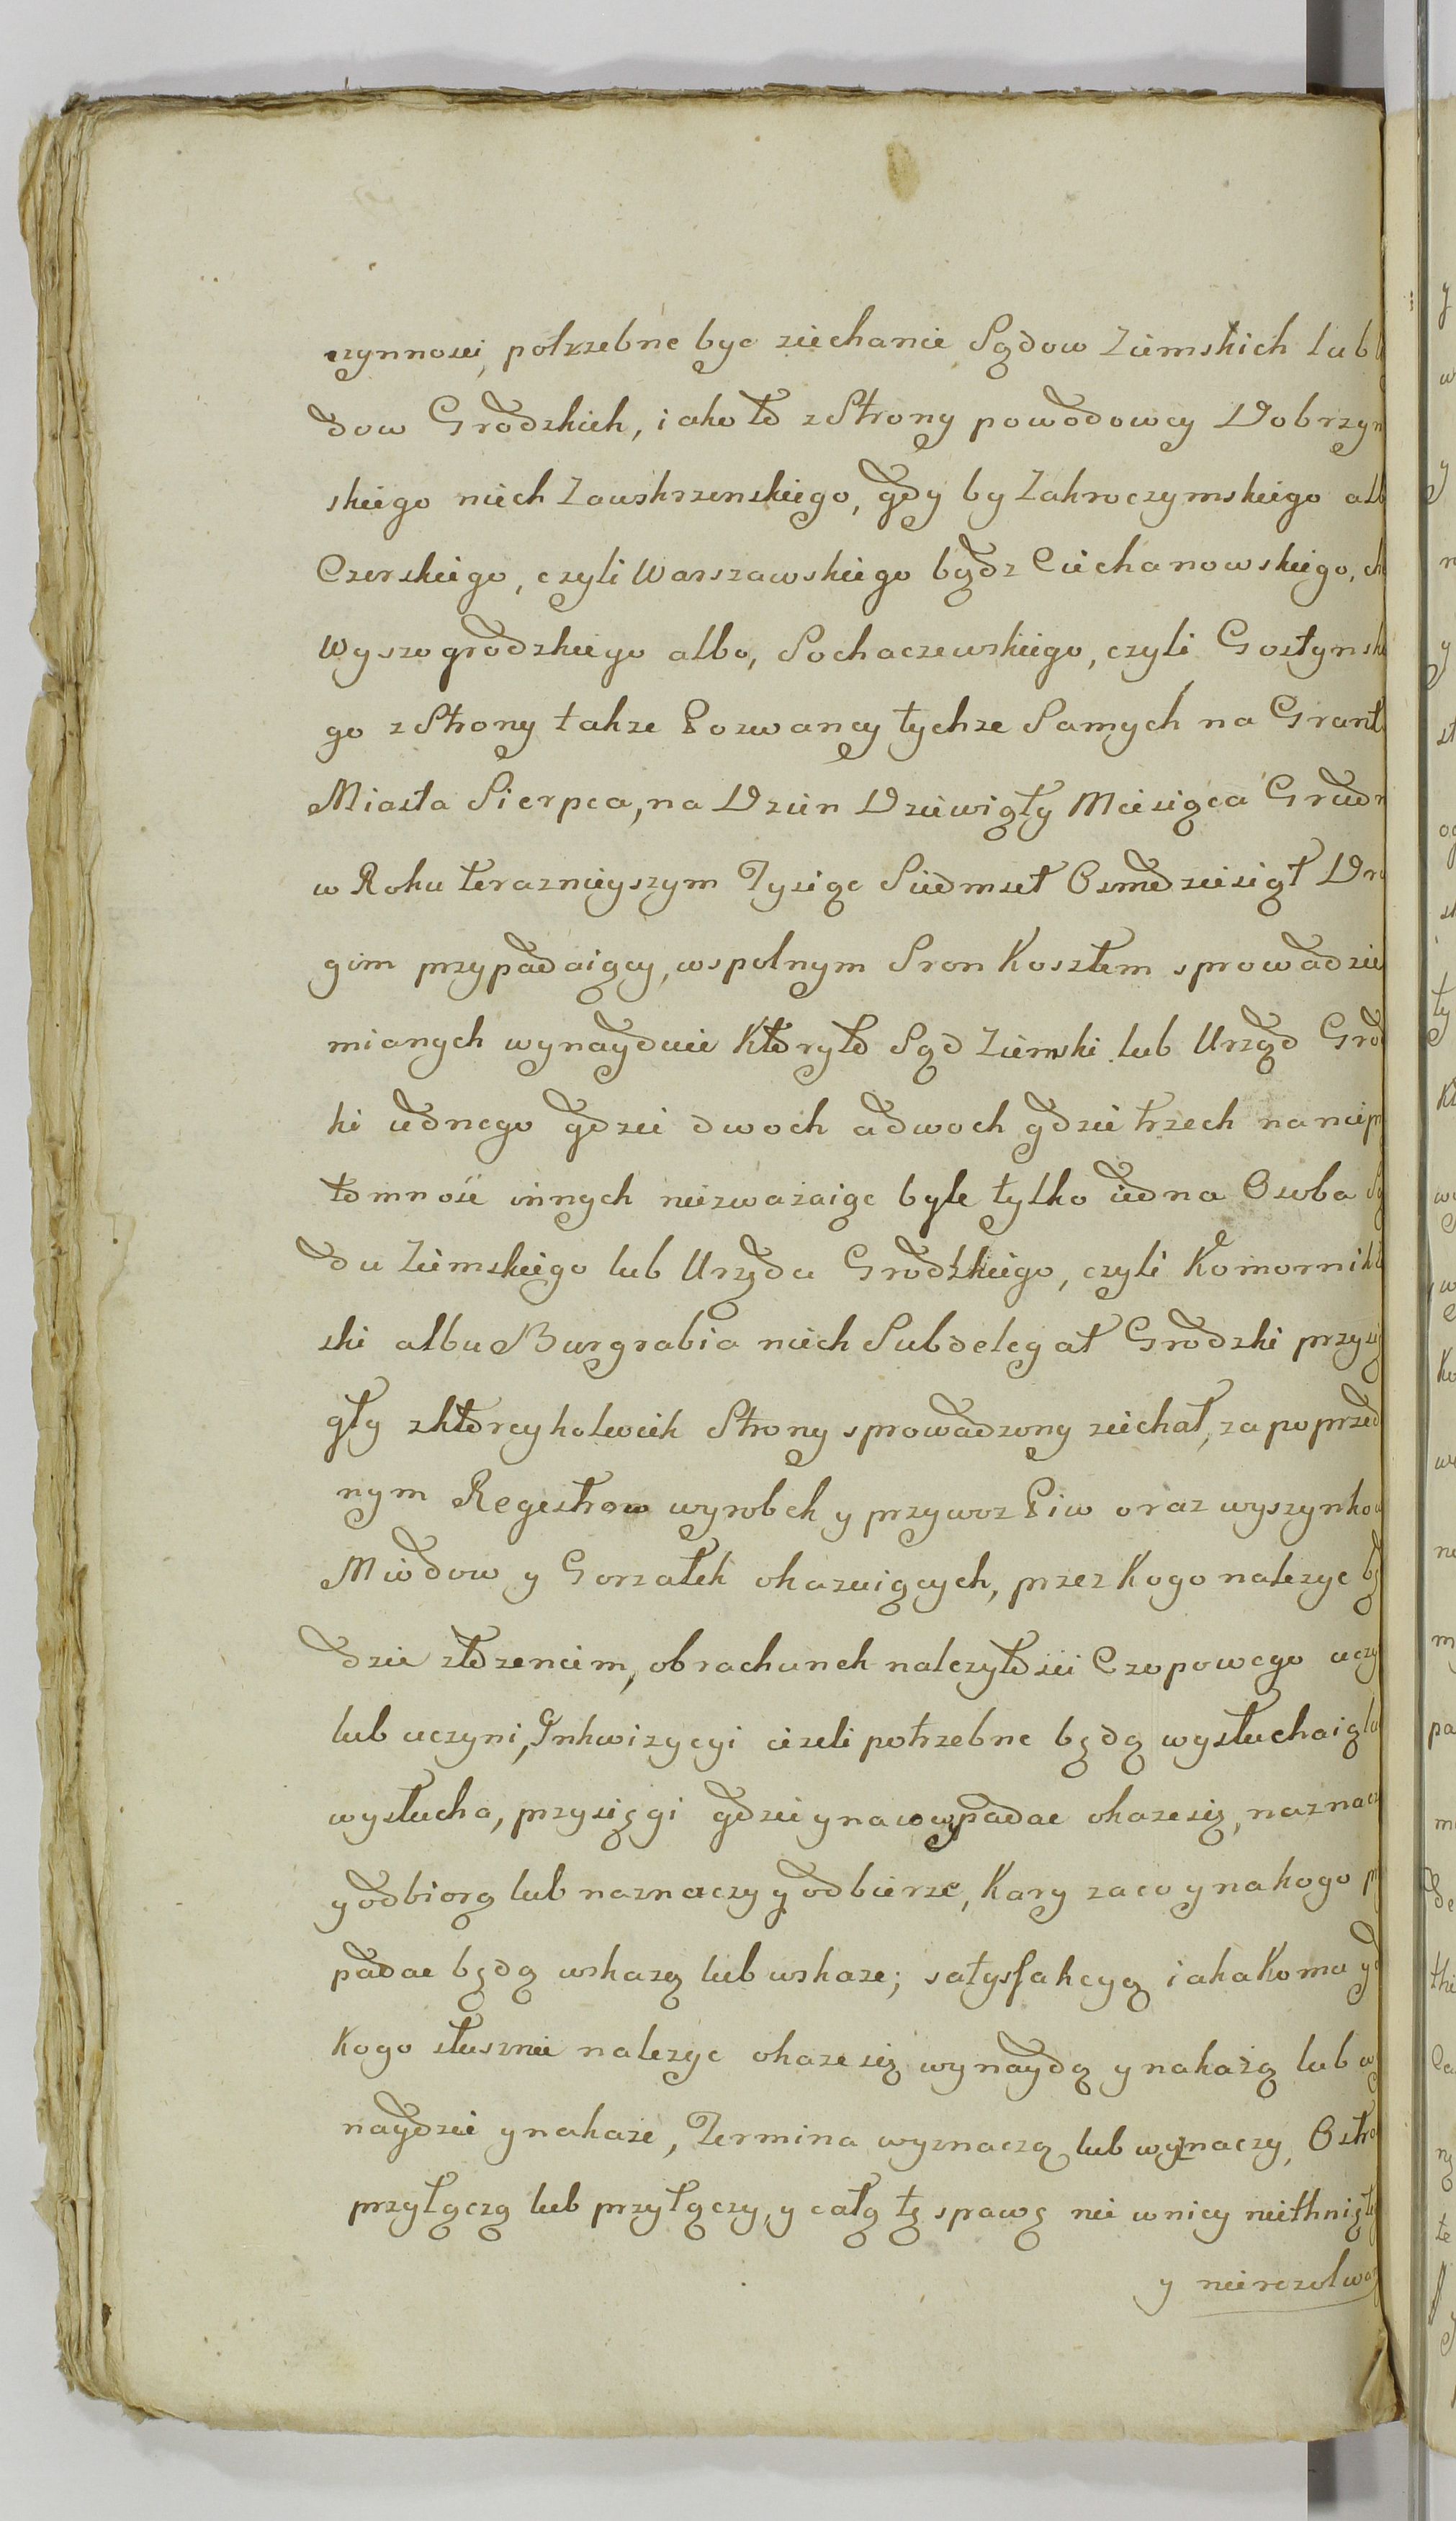 czynnosci, potrzebne byc ziechanie Sądow Ziemskich lub
dow Grodzkich, iako to z Strony powodowey Dobrzyn
skiego niech Zawskrzenskiego, gdy by Zakroczymskiego alb
Czerskiego, czyli Warszawskiego bądz Ciechanowskiego,
Wyszogrodzkiego albo, Sochaczewskiego, czyli Gostynsk
go z Strony takze Pozwaney tychze Samych na Grunt
Miasta Sierpca, na Dzien Dziewiąty Miesiąca Grudn
w Roku teraznieyszym Tysiąc Siedmset Osmdziesiąt Dru
gim przypadaiący, wspolnym Sron Kosztem sprowadzie
mianych wynaydzie Ktoryto Sąd Ziemski lub Urząd Grod
ki iednego gdzie dwoch a dwoch gdzie trzech na niep
tomność innych niezważaiąc byle tylko iedna Osoba Są
du Ziemskiego lub Urzędu Grodzkiego, czyli Komornik
ski albo Burgrabia niech Subdelegat Grodzki przysi
gły z ktoreykolwiek Strony sprowadzony ziechał, za poprzed
nym Regestrow wyrobek y przywoz Piw oraz wyszynkow
Miodow y Gorzałek okazuiących, przez Kogo nalezyc bę
dzie złozeniem, obrachunek nalezytosci Czopowego uczy
lub uczyni, Inkwizycyi ieżeli potrzebne będą wysłuchaią lu
wysłucha, przysięgi gdzie y na wypadac okaze się, naznacz
y odbiorą lub naznaczy y odbierze, Kary zaco y nakogo p
padac będą wskazą lub wskaze; satysfakcyą iaka Komu y
Kogo słusznie nalezyc okaze się wynaydą y nakażą lub wy
naydzie y nakaze, Termina wyznaczą lub wyznaczy, Ostro
przyłączą lub przyłączy, y całą tę sprawę nie w nicy nietknięt
y nierozolwo